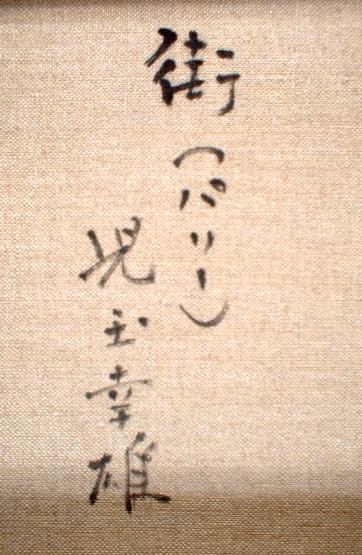 街（パリー）
児玉幸雄